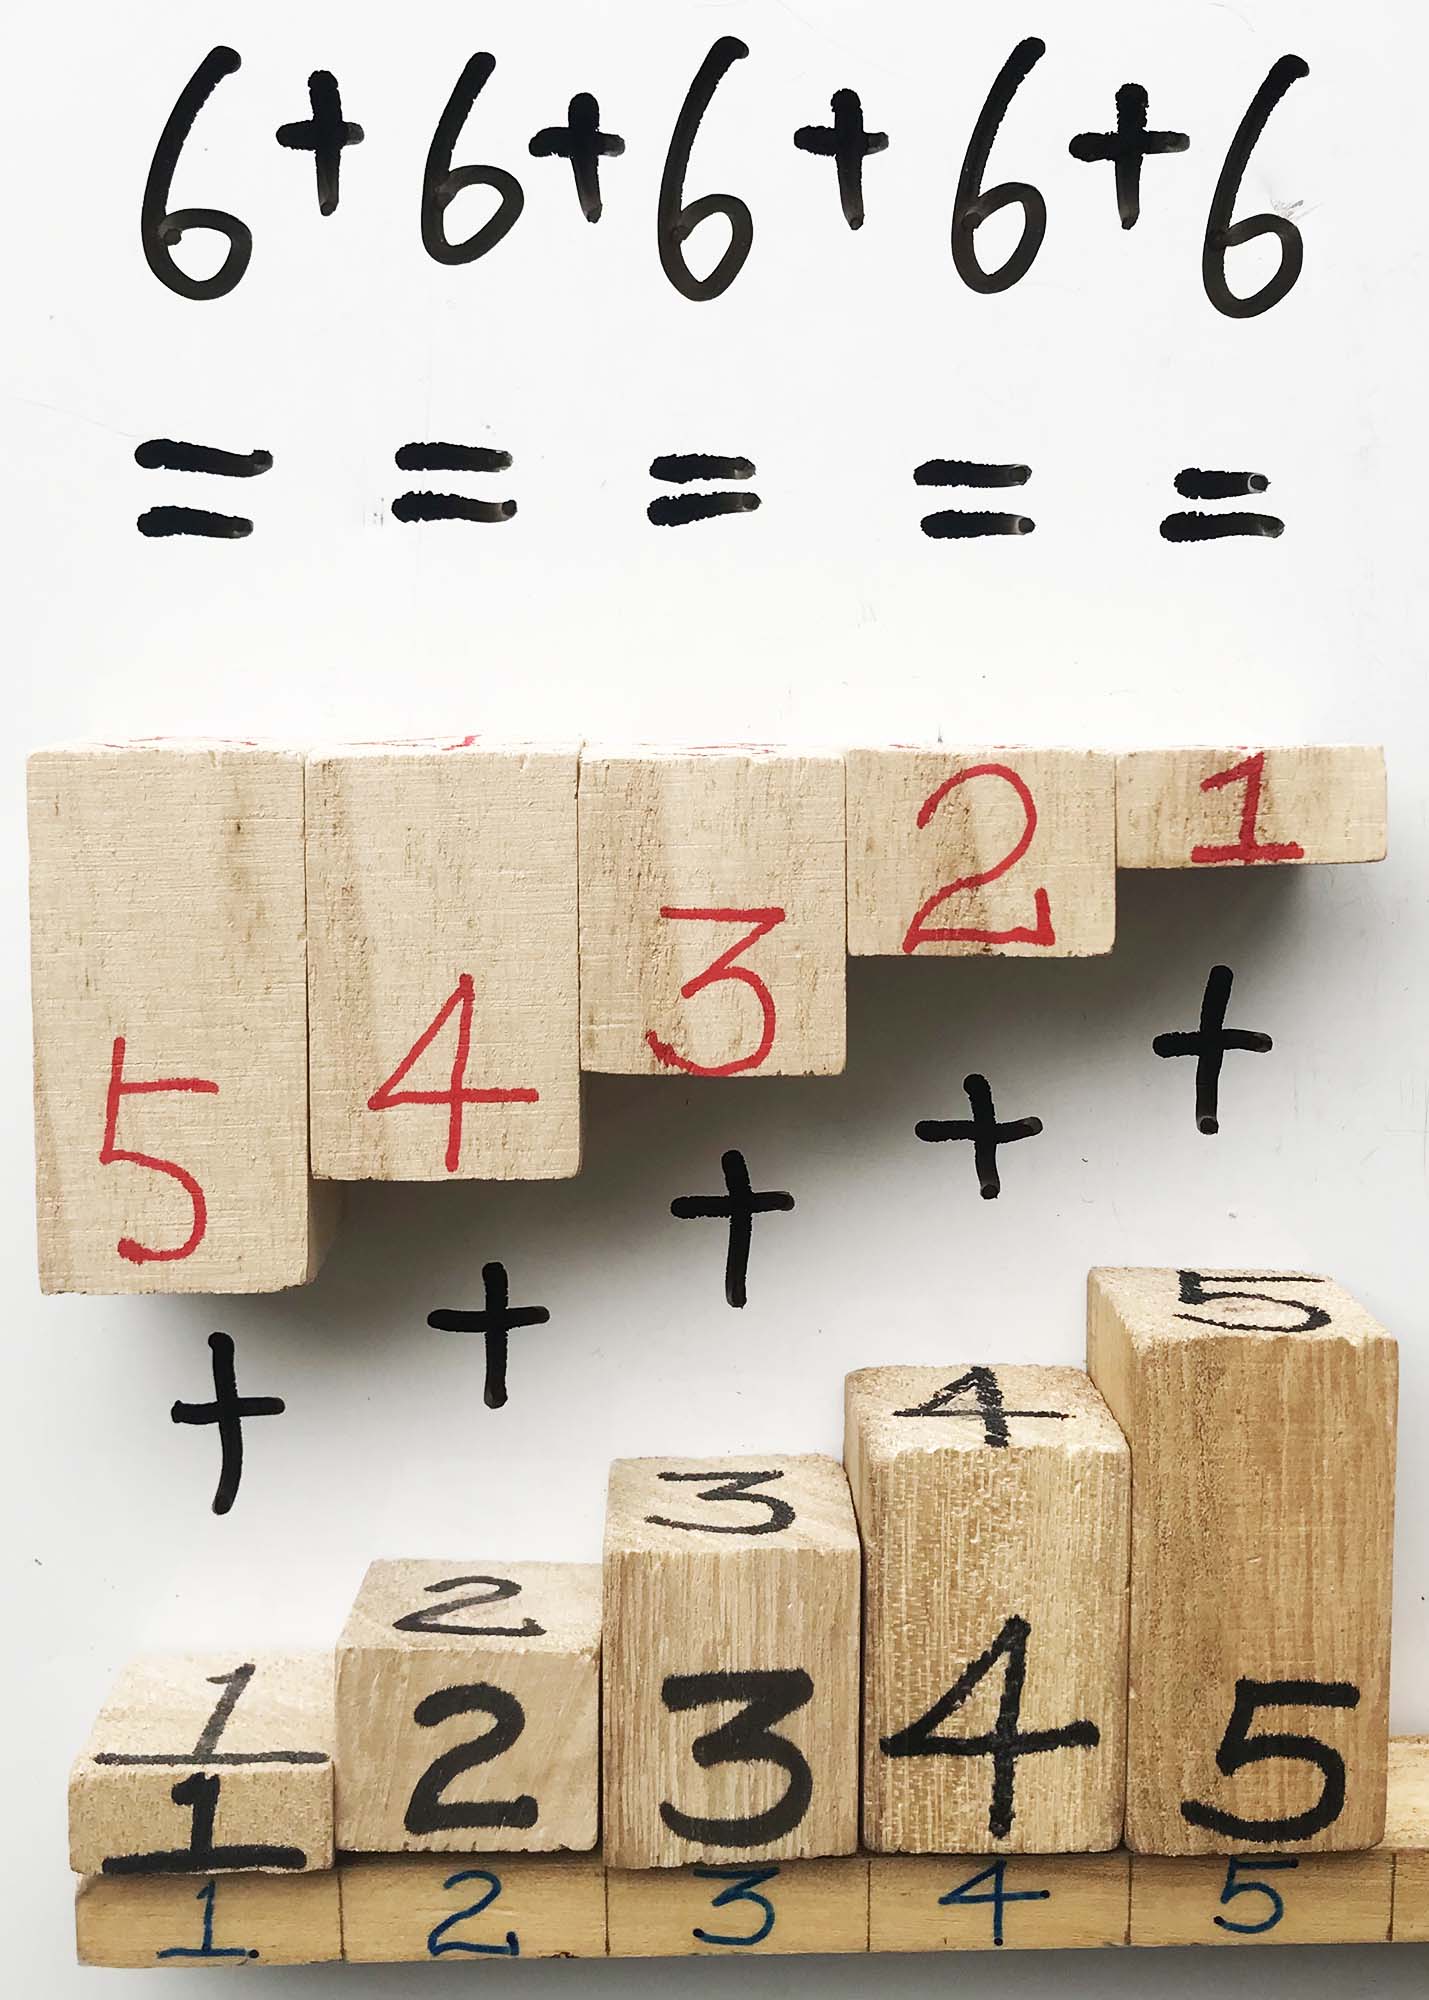 6+6+6+6+6
= = = = =
5 4 3 2 1
+ + + + +
1 2 3 4 5
1 2 3 4 5
1 2 3 4 5